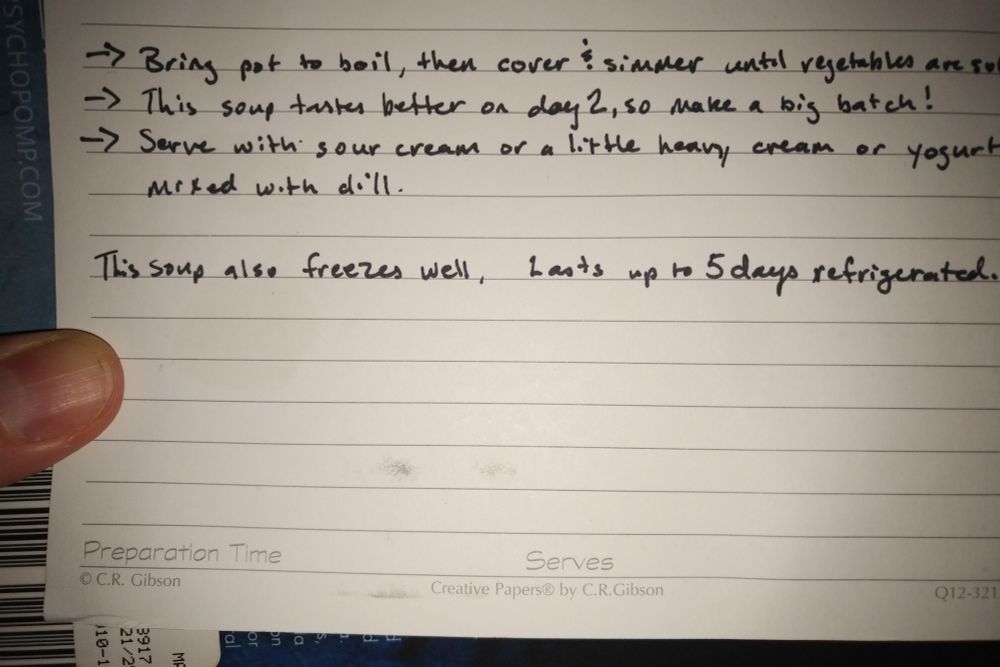 → Bring pot to boil, then cover & simmer until vegetables are
→ This soup tastes better on day 2, so make a big batch!
→ Serve with sour cream or a little heavy cream or yogurt
mixed with dill.
This soup also freezes well, Lasts up to 5 days refrigerated.
Preparation Time
Serves
© C.R. Gibson
Creative Papers® by C.R.Gibson
Q12-321
SYCHOPOMP.COM
3917
21/2